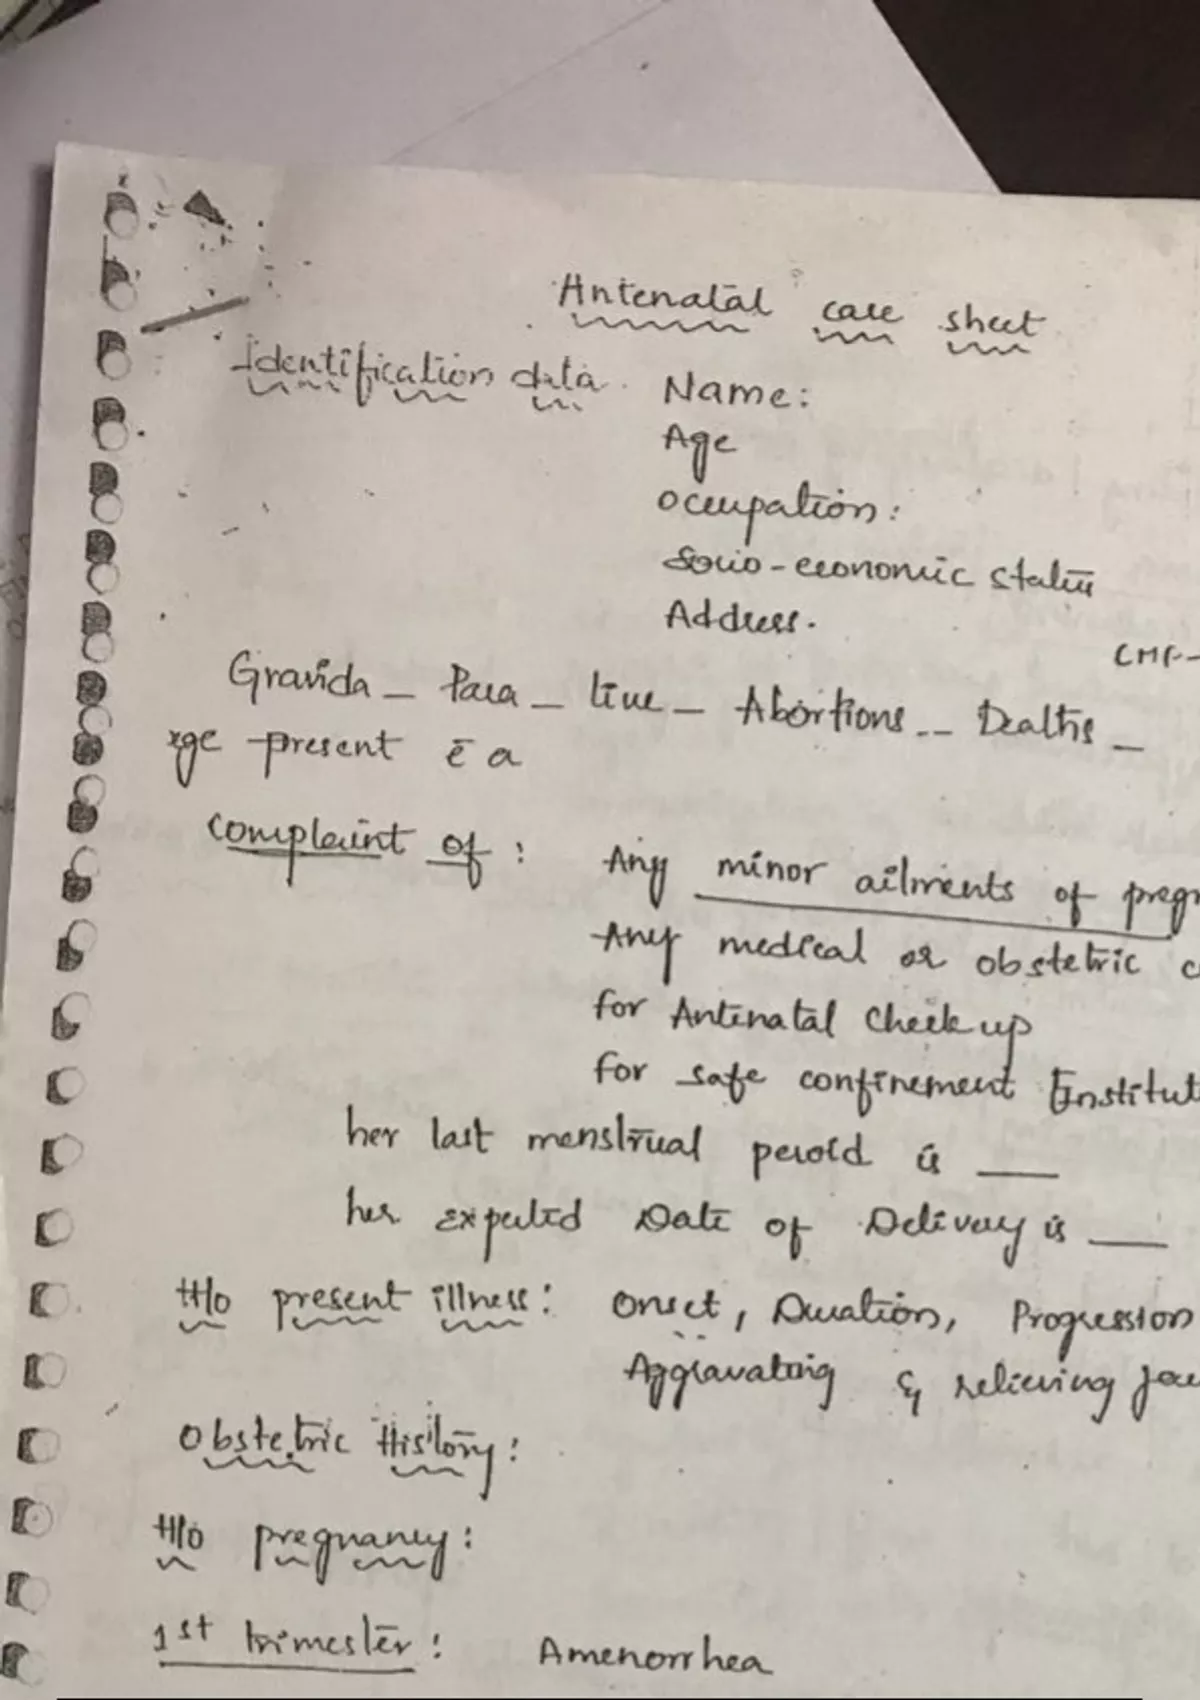 Antenatal case sheet
Identification data. Name:
Age
Occupation:
Socio-economic status
Address.
Gravida _ Para _ live _ Abortions _ _ Deaths _
present c̄ a
Complaint of : Any minor ailments of pregn
Any medical or obstetric c
for Antenatal Check up
for safe confinement Institut
her last menstrual peroid is ___
her expected Date of Delivery is ___
H/o present illness: Onset, Duration, Progression
Aggravating & relieving
Obstetric History:
H/o pregnancy:
1st trimester: Amenorrhea